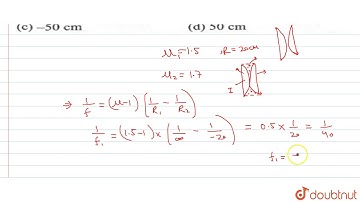 (c) –50 cm (d) 50 cm
μ₁=1.5 R=20cm
μ₂=1.7
I
⇒ 1/f = (μ-1) (1/R₁ - 1/R₂)
1/f₁ = (1.5-1)×(1/∞ - 1/-20) = 0.5×1/20 = 1/40
f₁ =
doubtnut